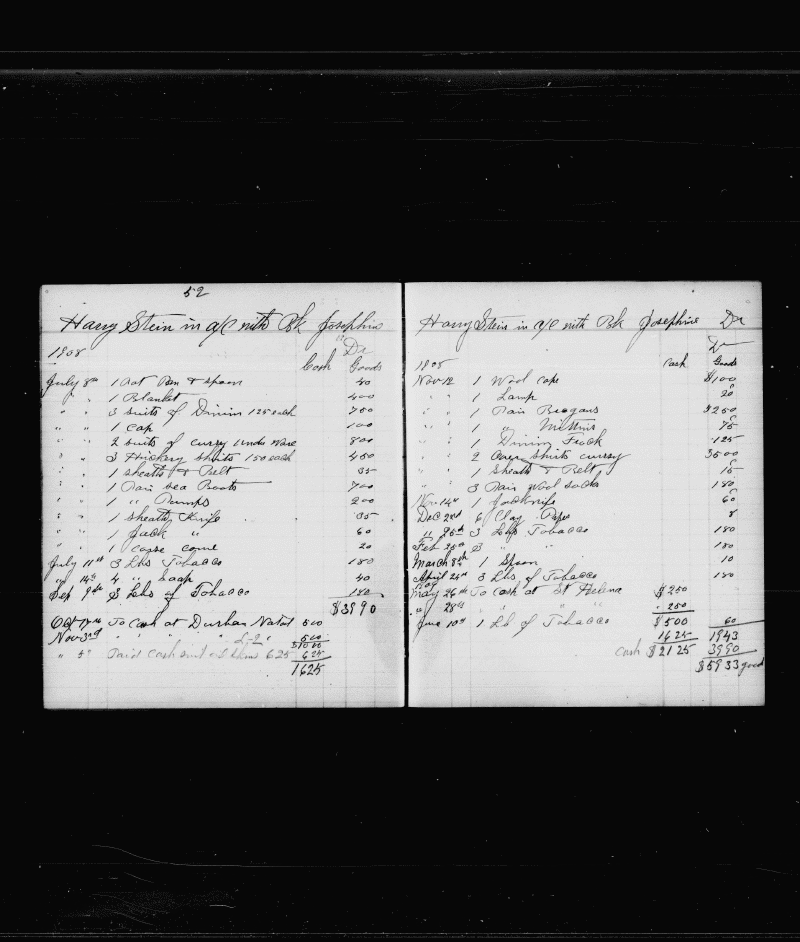 52
Harry Stein in a/c with Bk Josephine
Dr
1908
Cash Goods
July 8th 1 Pot Pan & spoon 40
" " 1 Blanket 400
" " 3 suits of Dinim 125 each 750
" " 1 cap 100
" " 2 suits of curry under ware 800
" " 3 Hickory shirts 150 each 450
" " 1 sheath & Belt 35
" " 1 Pair sea Boots 700
" " 1 " Pumps 200
" " 1 Sheath Knife 35
" " 1 Jack " 60
" " 1 coarse come 20
July 11th 3 Lbs Tobacco 180
" 14th 4 " soap 40
Sep 9th 3 Lbs of Tobacco 180
$3990
Oct 17th To Cash at Durban Natal 500
Nov 3rd " " " " £1-0 " 500
$1000
" 5th Paid Cash 625 625
1625
Harry Stein in a/c with Bk Josephine Dr
Dr
1908 Cash Goods
Nov 12 1 Wool cap $100
" " 1 Lamp 20
" " 1 Pair Brogans $250
" " 1 " Mittins 75
" " 1 Dinim Frock 125
" " 2 Over shirts curry 3500
" " 1 Sheath & Belt 15
" " 3 Pair Wool socks 180
Nov 14th 1 Jacknife 60
Dec 2nd 6 Clay Pipes 8
" 25th 3 Lbs Tobacco 180
Feb 25th 3 " " 180
March 8th 1 Spoon 10
April 24th 3 Lbs of Tobacco 180
May 26th To Cash at St Helena $250
" 28th " " " 250
June 10th 1 Lb of Tobacco $500 60
1625 1943
Cash $2125 3990
$5933 goods